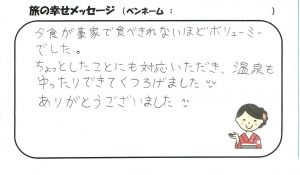 旅の幸せメッセージ（ペンネーム：　　　　　）
夕食が豪家で食べきれないほどボリューミー
でした。
ちょっとしたことにも対応いただき、温泉も
ゆったりできてくつろげました
ありがとうございました